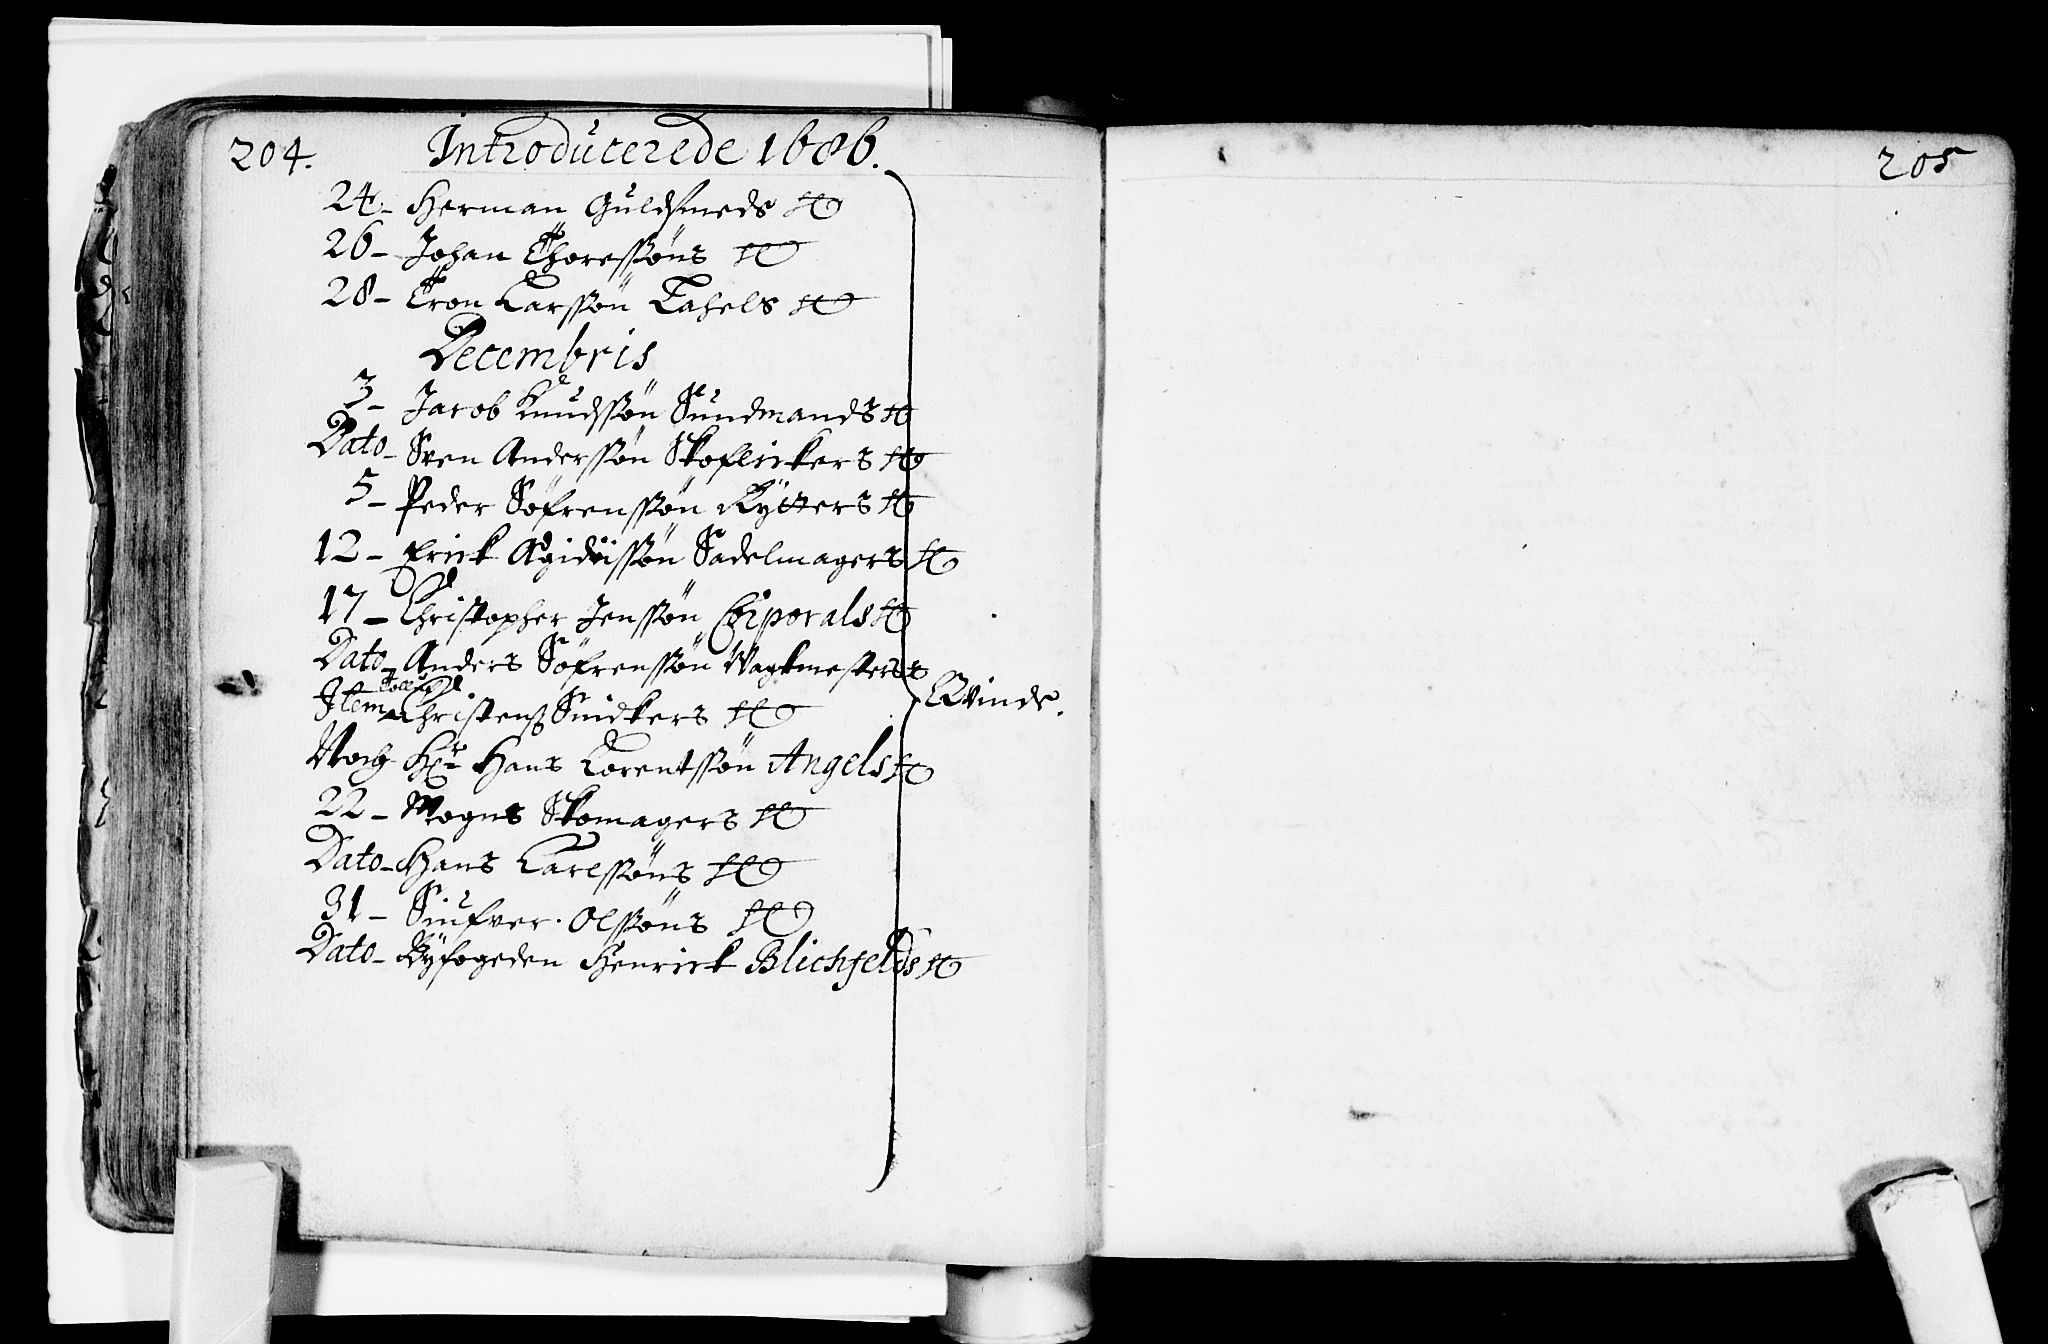 204. Introducerede 1686.
24- Herman Guldsmeds
26- Johan Thoressøns
28- Tron Larssøn Tahels
Decembris
3- Jacob Knudssøn Sundmands
Dato- Sven Anderssøn Skoflickers
5- Peder Søfrenssøn Rytters
12- Erick Ægidiissøn Sadelmagers
17- Christopher Jenssøn Corporals
Dato- Anders Søfrenssøn Wagtmesters
Item Christens Snidkers
Qvinde.
Noch Hr Hans Lorentssøn Angels
22- Mogns Skomagers
Dato- Hans Karlssøns
31- Siufver Olssøns
Dato- Byfogeden Henrick Blichfelds
205